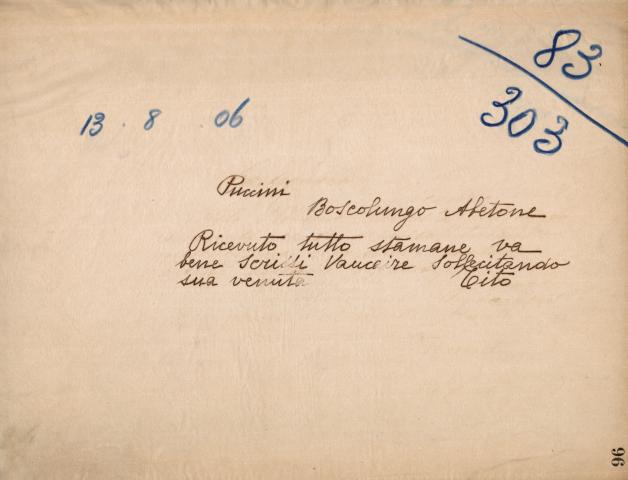 83
303
13 . 8 . 06
Puccini
Boscolungo Abetone
Ricevuto tutto stamane va
bene scrissi Vaucaire sollecitando
sua venuta Tito
96